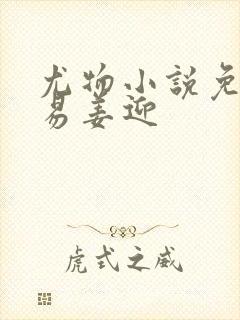 尤物小説免
易姜迎
虎式之威